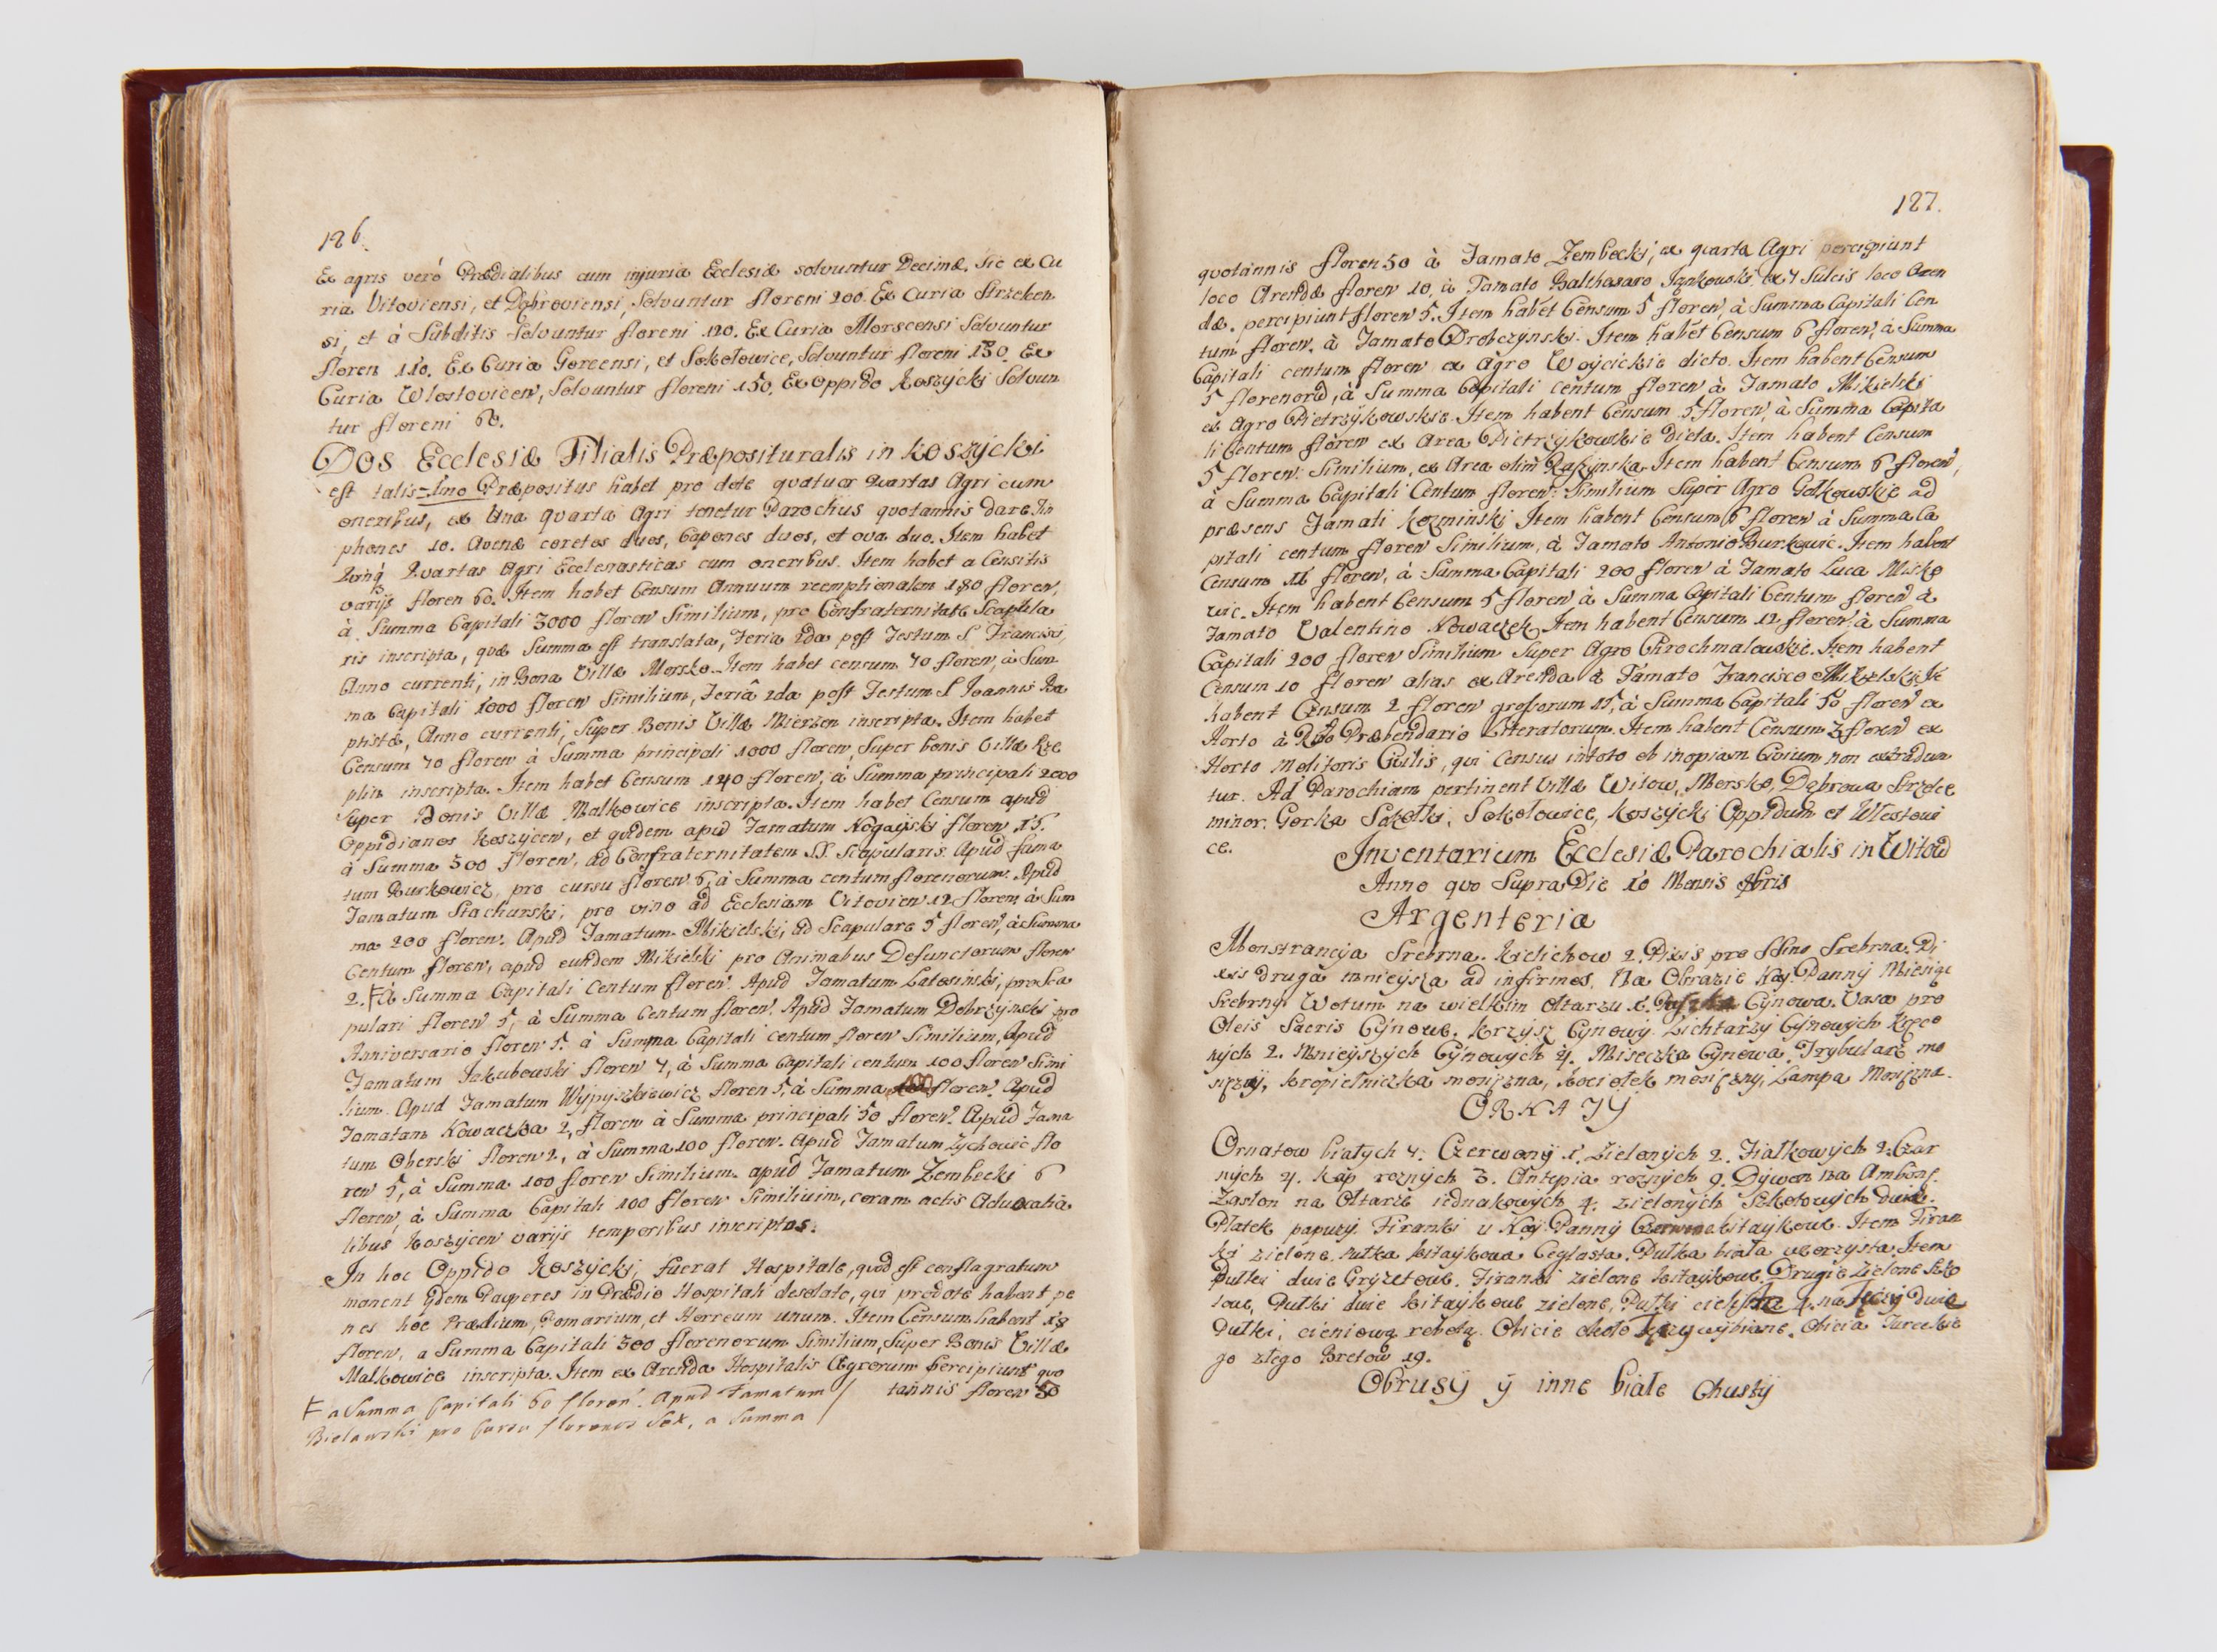 126.
Ex agris verò Prædialibus cum injuria Ecclesiæ solvuntur Decimæ. Sic ex Cu
ria Vitoviensi, et Dąbroviensi, Solvuntur floreni 200. Ex Curia Strzelcen
si, et à Subditis Solvuntur floreni 120. Ex Curia Morscensi Solvuntur
floren 110. Ex Curia Gorcensi, et Sokołowice, Solvuntur floreni 130. Ex
Curia Włostovicen, Solvuntur floreni 150. Ex Oppido Koszÿcki Solvun
tur floreni 60.
Dos Ecclesiæ Filialis Præposituralis in Koszÿcki
est talis = Imo Præpositus habet pro dote quatuor Quartas Agri cum
oneribus, ex Una quarta Agri tenetur Parochus quotannis dare
phones 10. Avenæ coretos duos, Capones duos, et ova duo. Item habet
Quinq Quartas Agri Ecclesiasticas cum oneribus. Item habet a Censitis
varijs floren 60. Item habet Censum Annuum reemptionalem 180 floren,
à Summa Capitali 3000 floren Similium, pro Confraternitate Scapula
ris inscripta, quæ Summa est translata, Feria 2da post Festum S. Francisci,
Anno currenti, in Bona Villæ Morsko. Item habet censum 70 floren, à Sum
ma Capitali 1000 floren Similium, Feriâ 2da post Festum S Ioannis Ba
ptistæ, Anno currenti, Super Bonis Villæ Mierzen inscripta. Item habet
Censum 70 floren à Summa principali 1000 floren, Super bonis Villæ Krze
plin inscripta. Item habet Censum 140 floren, à Summa principali 2000
Super Bonis Villæ Malkowice inscripta. Item habet Censum apud
Oppidianos Koszÿcen, et quidem apud Famatum Nogaÿski floren 15.
à Summa 300 floren, ad Confraternitatem SS. Scapularis. Apud fama
tum Burkowicz, pro cursu floren 6, à Summa centum florenorum. Apud
Famatum Stachurski, pro vino ad Ecclesiam Vitovien 12 floren, à Sum
ma 200 floren. Apud Famatum Mikielski, ad Scapulare 5 floren, à Summa
Centum floren, apud eundem Mikielski pro Animabus Defunctorum floren
2. à Summa Capitali Centum floren. Apud Famatum Latosinski, pro Sca
pulari floren 5, à Summa Centum floren. Apud Famatum Dobrzÿnski pro
Anniversario floren 5. à Summa Capitali centum floren Similium, Apud
Famatum Jakubowski floren 7, à Summa Capitali centum 100 floren Simi
lium. Apud Famatum Wÿpyszkiewicz floren 5, à Summa 100 floren. Apud
Famatam Kowaczka 2, floren à Summa principali 50 floren. Apud Fama
tum Oberski floren 2, à Summa 100 floren. Apud Famatum Zychowic flo
ren 5, à Summa 100 floren Similium. apud Famatum Zembecki 6
floren, à Summa Capitali 100 floren Similium, coram actis Advocatia
libus Koszÿcen varijs temporibus inscriptas.
In hoc Oppido Koszÿcki, fuerat Hospitale, quod est conflagratum
manent qdem Pauperes in Prædio Hospitali desolato, qui pro dote habent pe
nes hoc Prædium, Pomarium, et Horreum unum. Item Censum habent 18
floren, a Summa Capitali 300 florenorum Similium, Super Bonis Villæ
Malkowice inscripta. Item ex Arenda Hospitalis Agrorum percipiunt quo
tannis floren 50
a Summa Capitali 60 floren. Apud Famatum
Bielawski pro cursu florenos Sex, a Summa
127.
quotannis floren 50 à Famato Zembecki, ex quarta Agri percipiunt
loco Arendæ floren 10, à Famato Balthasaro Jankowski ex 7 Sulcis loco Aren
dæ. percipiunt floren 5. Item habet Censum 5 floren, à Summa Capitali Cen
tum floren. à Famato Drobczÿnski. Item habet Censum 6 floren, à Summa
Capitali centum floren ex Agro Woÿcickie dicto. Item habent Censum
5 florenorũ, à Summa Capitali centum floren à Famato Mikielski
ex Agro Pietrzÿkowskie. Item habent Censum 5 floren, à Summa Capita
li Centum floren ex Area Pietrzÿkowskie dicta. Item habent Censum
5 floren. Similium, ex Area olim Item habent Censum 6 floren,
à Summa Capitali Centum floren: Similium Super Agro Gołkowskie ad
præsens Famati Kozminski Item habent Censum 6 floren à Summa Ca
pitali centum floren Similium, à Famato Antonio Burkowic. Item habent
Censum 11 floren, à Summa Capitali 200 floren à Famato Luca Misko
wic. Item habent Censum 5 floren à Summa Capitali Centum floren à
Famato Valentino Kowaczek. Item habent Censum 12 floren. à Summa
Capitali 200 floren Similium Super Agro Pirochmalowskie. Item habent
Censum 10 floren alias ex Arenda à Famato Francisco Mikielski. Ite
habent Censum 2 floren grossorum 15, à Summa Capitali 50 floren ex
Horto à Rdo Præbendario Literatorum. Item habent Censum 3 floren ex
Horto Molitoris Civilis, qui Census in toto ob inopiam Civium non extradun
tur. Ad Parochiam pertinent Villæ Witow, Morsko, Dąbrowa Strzelce
minor. Gorka Sokołki, Sokołowice, Koszÿcki Oppidum et Włostowi
ce.
Inventarium Ecclesiæ Parochialis in Witow
Anno quo Supra Die 10 Mensis
Argenteria
Monstrancÿa Srebrna. Kielichow 2. Pixis pro SSmo Srebrna. Pi
xis druga mnieÿsza ad infirmos. Na Obrazie Naÿ. Pannÿ Miesiąc
Srebrnÿ Wotum na wielkim Ołtarzu 1. Puszka Cÿnowa. Vasa pro
Oleis Sacris Cÿnowe. Krzÿsz Cynowÿ. Lichtarzÿ Cÿnowÿch Kręco
nÿch 2. Mnieÿszÿch Cÿnowÿch 4. Miseczka Cÿnowa. Trybularz mo
siężnÿ, Kropielniczka mosiężna, Kociołek mosiężnÿ, Lampa Mosiężna.
ORNATŸ
Ornatow białych 7. Czerwonÿ 1. Zielonÿch 2. Fiałkowÿch 2. Czar
nÿch 4. Kap roznÿch 3. Antepia roznÿch 9. Dÿwon na Ambonę.
Zasłon na Ołtarze iednakowÿch 4. zielonÿch Szkotowÿch dwie.
Płatek papuzÿ. Firanki u Naÿ. Pannÿ Czerwone kitaÿkowe. Item Firan
ki zielone. Pułka kitaÿkowa Ceglasta. Pułka biała wzorzÿsta. Item
Pułki dwie Grÿzetowe. Firanki zielone kitaÿkowe. Drugie zielone szko
towe, Pułki dwie kitaÿkowe zielone, Pułki 4. na Tęczÿ dwie
Pułki, cieniową robotą. Obicie około Tęczy wÿbiane. Obicia Tureckie
go złego Bretow 19.
Obrusÿ ÿ inne białe Chustÿ